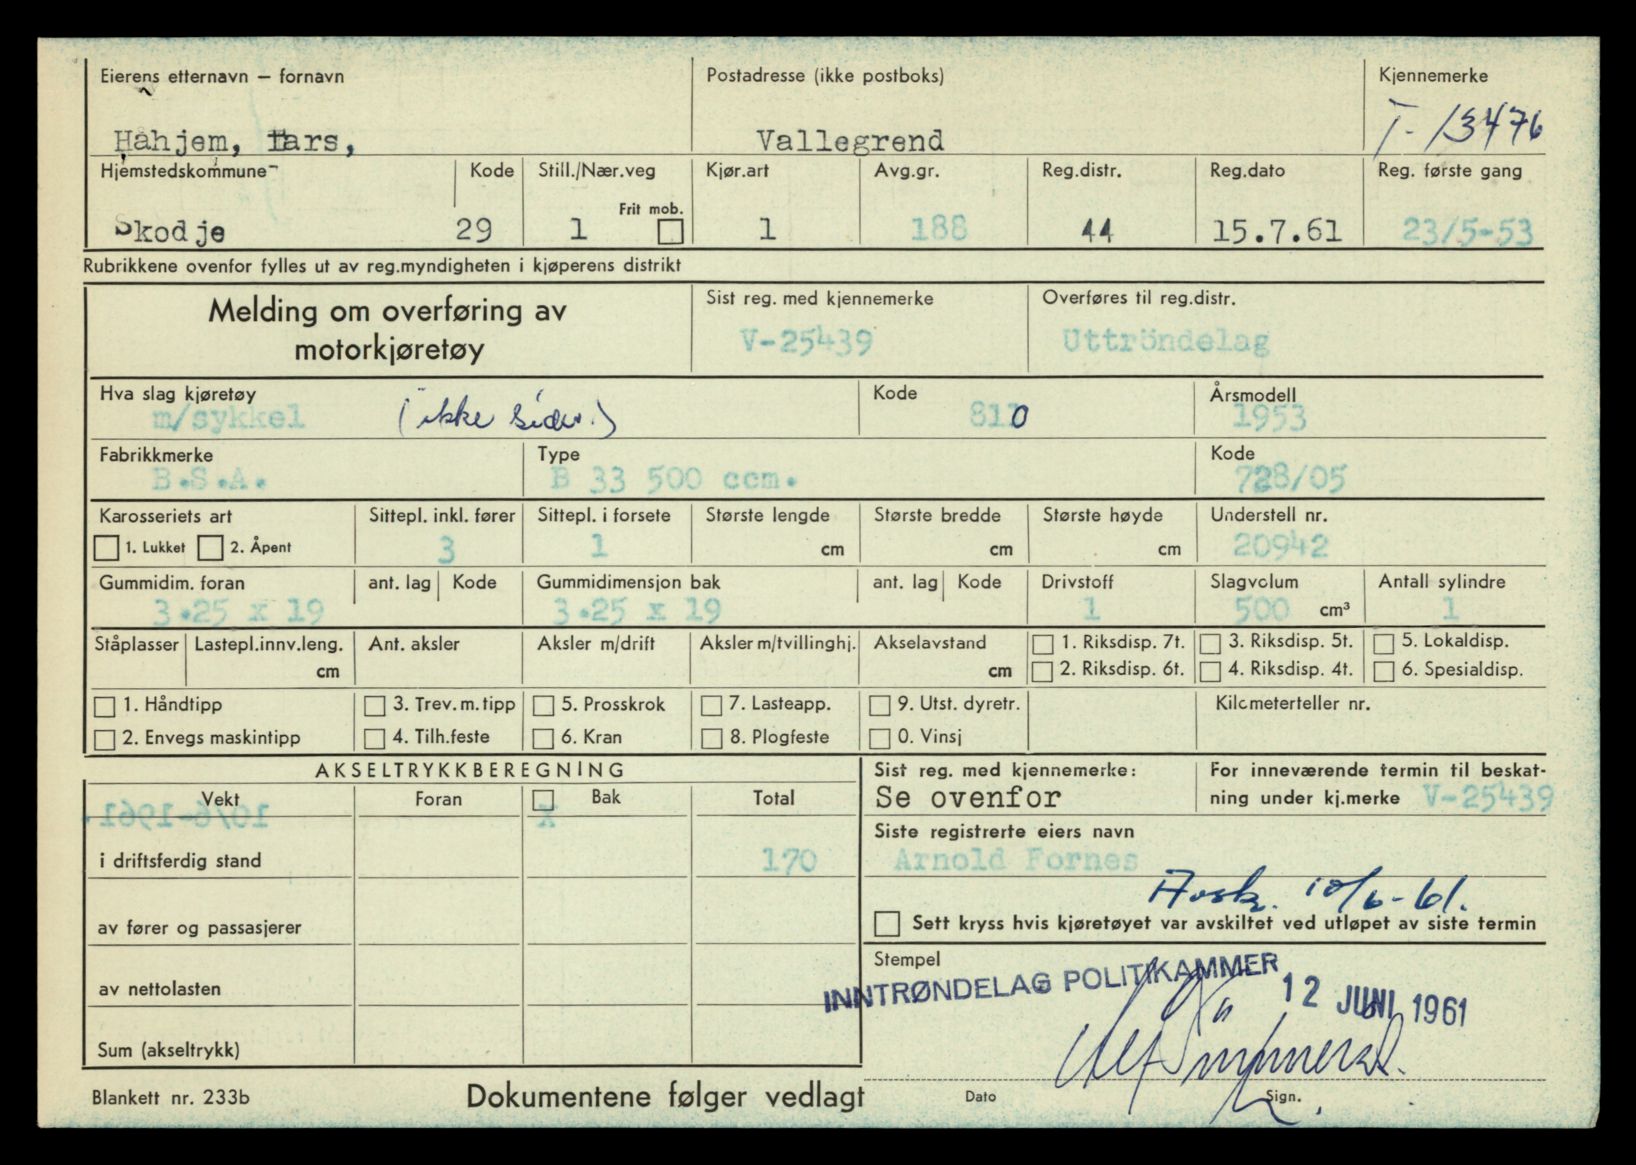 Eierens etternavn – fornavn
Postadresse (ikke postboks)
Kjennemerke
Håhjem, Lars,
Vallegrend
T-13476
Hjemstedskommune
Kode
Still./Nær.veg
Kjør.art
Avg.gr.
Reg.distr.
Reg.dato
Reg. første gang
Frit mob.
Skodje
29
1
1
188
44
15.7.61
23/5-53
Rubrikkene ovenfor fylles ut av reg.myndigheten i kjøperens distrikt
Melding om overføring av
motorkjøretøy
Sist reg. med kjennemerke
Overføres til reg.distr.
V-25439
Uttröndelag
Hva slag kjøretøy
Kode
Årsmodell
m/sykkel
(ikke sidev.)
8110
1953
Fabrikkmerke
Type
Kode
B.S.A.
B 33 500 ccm.
728/05
Karosseriets art
Sittepl. inkl. fører
Sittepl. i forsete
Største lengde
Største bredde
Største høyde
Understell nr.
1. Lukket
2. Åpent
3
1
cm
cm
cm
20942
Gummidim. foran
ant. lag
Kode
Gummidimensjon bak
ant. lag
Kode
Drivstoff
Slagvolum
Antall sylindre
3.25 x 19
3.25 x 19
1
500 cm³
1
Ståplasser
Lastepl.innv.leng.
cm
Ant. aksler
Aksler m/drift
Aksler m/tvillinghj.
Akselavstand
cm
1. Riksdisp. 7t.
3. Riksdisp. 5t.
5. Lokaldisp.
2. Riksdisp. 6t.
4. Riksdisp. 4t.
6. Spesialdisp.
1. Håndtipp
3. Trev. m. tipp
5. Prosskrok
7. Lasteapp.
9. Utst. dyretr.
Kilometerteller nr.
2. Envegs maskintipp
4. Tilh.feste
6. Kran
8. Plogfeste
0. Vinsj
AKSELTRYKKBEREGNING
Vekt
Foran
Bak
Total
10/6-1961.
x
i driftsferdig stand
170
av fører og passasjerer
av nettolasten
Sum (akseltrykk)
Sist reg. med kjennemerke:
Se ovenfor
For inneværende termin til beskat-
ning under kj.merke V-25439
Siste registrerte eiers navn
Arnold Fornes
Avsk. 10/6-61.
Sett kryss hvis kjøretøyet var avskiltet ved utløpet av siste termin
Stempel
INNTRØNDELAG POLITIKAMMER
12 JUNI 1961
Dato
Sign.
Blankett nr. 233b
Dokumentene følger vedlagt